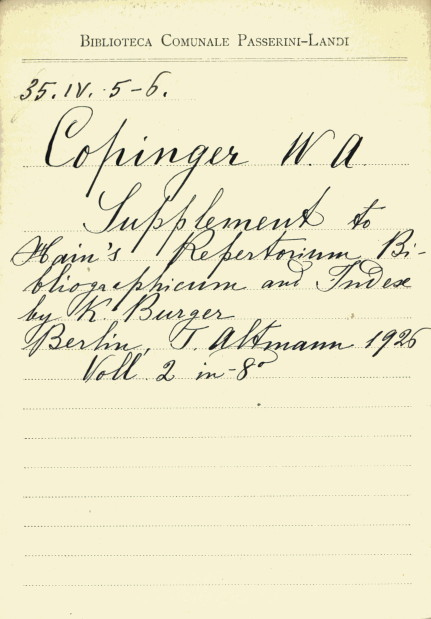 BIBLIOTECA COMUNALE PASSERINI-LANDI
35.IV.5-6.
Copinger W. A.
Supplement to
Hain's Repertorium Bi-
bliographicum and Indexe
by K. Burger
Berlin, J. Altmann 1926
Voll. 2 in-8°